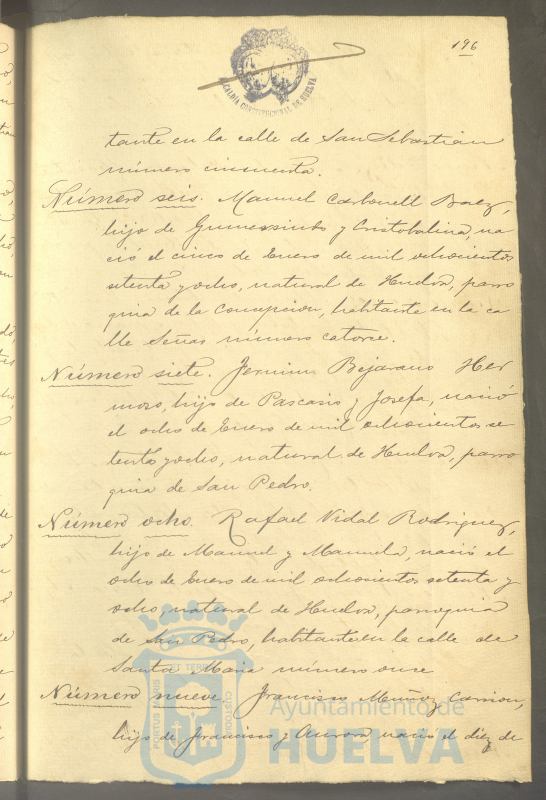 196
ALCALDIA CONSTITUCIONAL DE HUELVA
tante en la calle de San Sebastian
número cincuenta.
Número seis. Manuel Carbonell Baez,
hijo de Gumersindo y Cristobalina, na
ció el cinco de Enero de mil ochocientos
setenta y ocho, natural de Huelva, parro
quia de la Concepcion, habitante en la ca
lle Señas número catorce.
Número siete. Fermin Bejarano Her
moso, hijo de Pascasio y Josefa, nació
el ocho de Enero de mil ochocientos se
tenta y ocho, natural de Huelva, parro
quia de San Pedro.
Número ocho. Rafael Vidal Rodriguez,
hijo de Manuel y Manuela, nació el
ocho de Enero de mil ochocientos setenta y
ocho, natural de Huelva, parroquia
de San Pedro, habitante en la calle de
Santa Maria número once
Número nueve. Francisco Muñoz Carrion,
hijo de Francisco y Aurora nacio el diez de
PORTUS MARIS ET TERRAE CUSTODIA
Ayuntamiento de
HUELVA